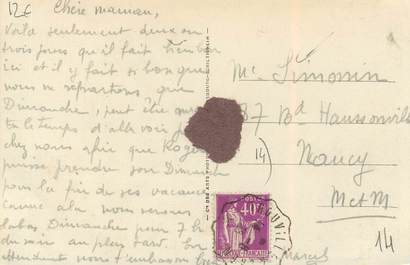 12€
Chère maman,
Voilà seulement deux ou
trois jours qu'il fait bien bon
ici et il y fait si bon que
nous ne repartirons que
Dimanche, peut être
le temps d'aller voir
chez nous afin que Roger
puisse prendre son Dimanche
pour la fin de ses vacances
comme cela nous serons
labas Dimanche pour 7 h
du soir au plus tard. En
attendant nous t'embrassons
Marcel
Mme Simonin
87 Bd Haussonville
14)
Nancy
M et M
14
POSTES
40c